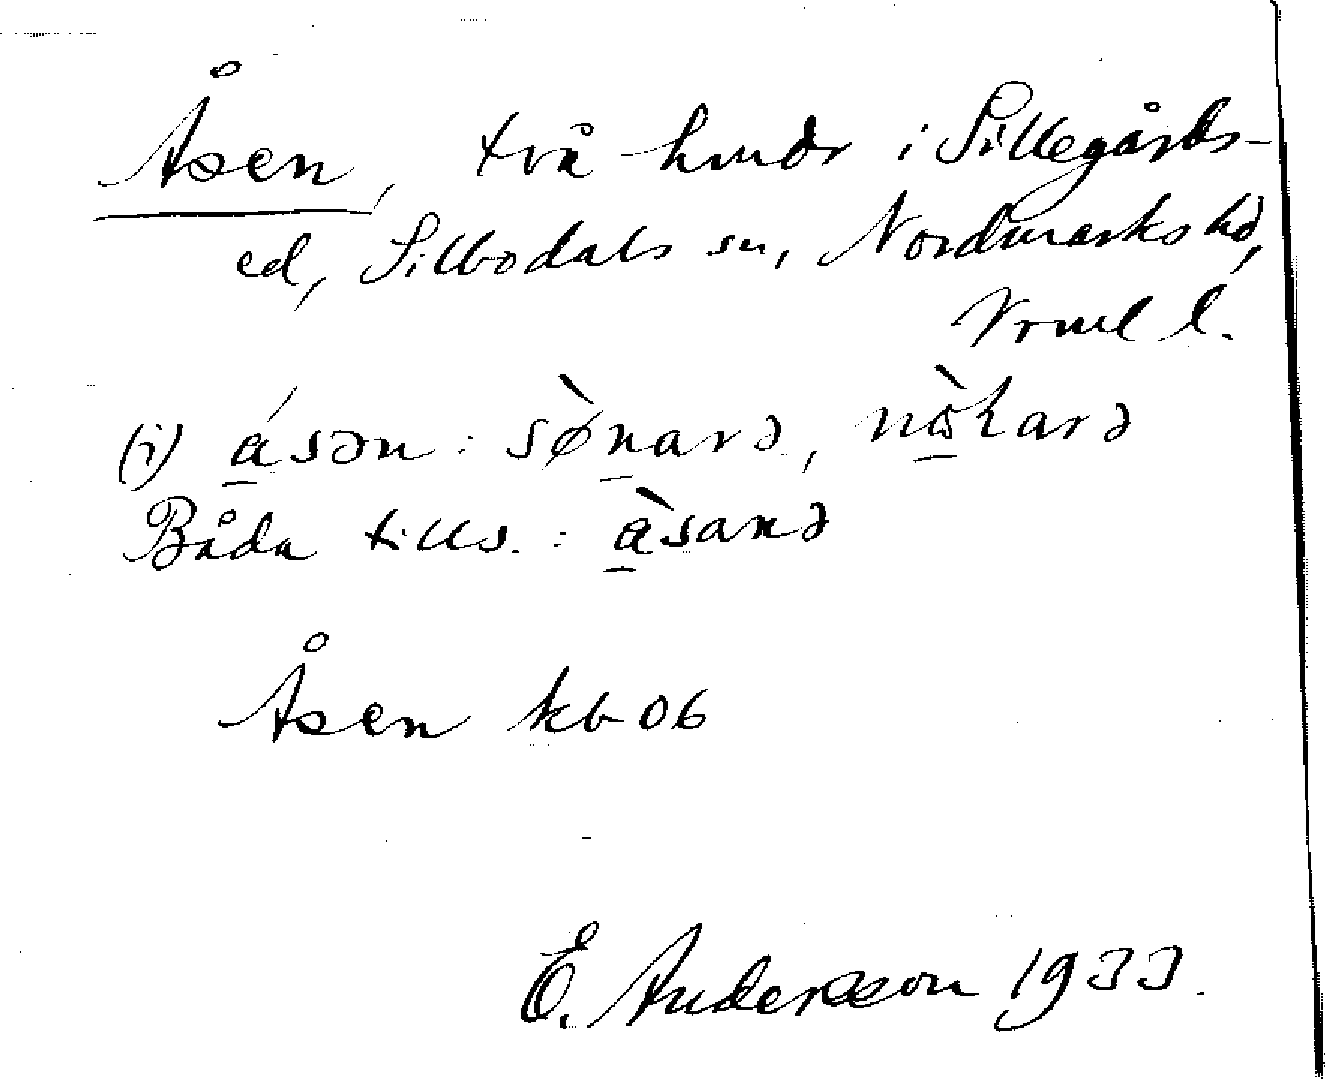 Åsen, två hmdr i Sillegårds-
ed, Silbodals sn, Nordmarks hd,
Vrml l.
(i) ásən : sø̀narə, nò̱karə
Båda tills. : àsanə
Åsen kb 06
E. Andersson 1933.